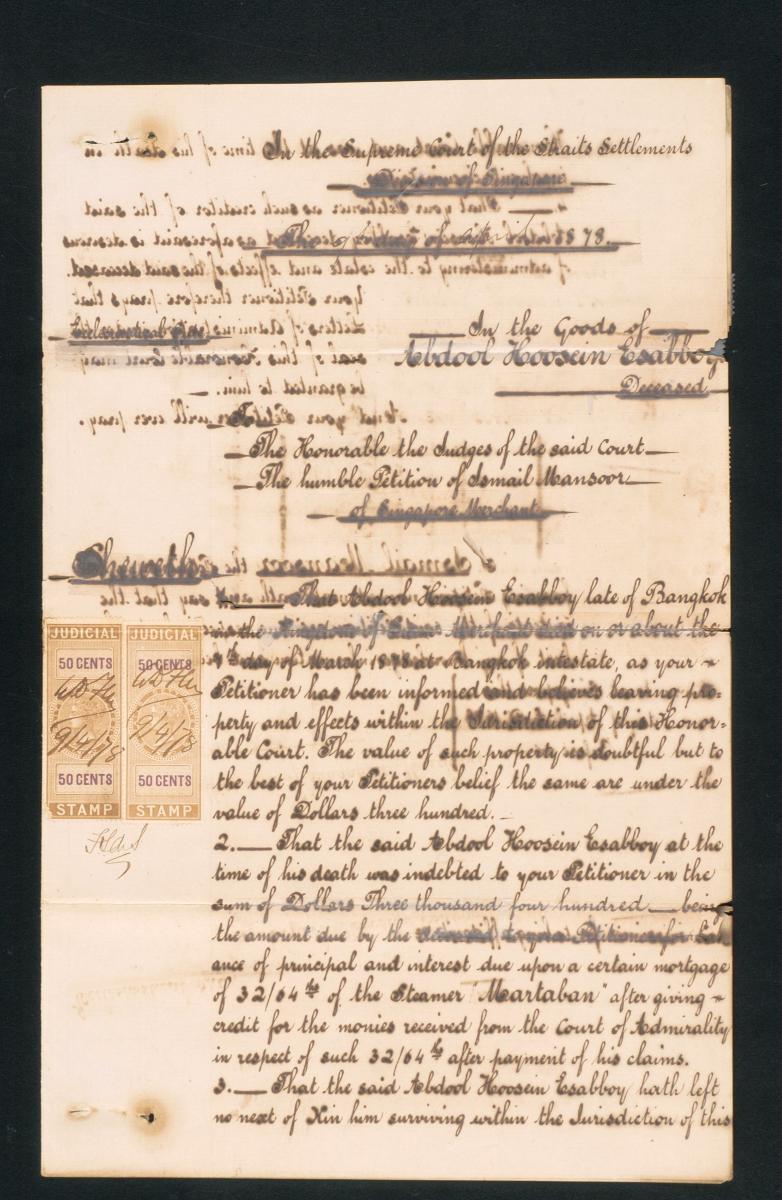 In the Supreme Court of the Straits Settlements
Division of Singapore
This day of 1878.
In the Goods of
Abdool Hoosein Esabboy
Deceased
Ecclesiastical
To
The Honorable the Judges of the said Court
The humble Petition of Ismail Mansoor
of Singapore Merchant
Sheweth
That Abdool Hoosein Esabboy late of Bangkok
in the Kingdom of Siam Merchant died on or about the
day of March 1878 at Bangkok intestate, as your
Petitioner has been informed and believes leaving pro-
perty and effects within the Jurisdiction of this Honor-
able Court. The value of such property is doubtful but to
the best of your Petitioners belief the same are under the
value of Dollars three hundred.
2. That the said Abdool Hoosein Esabboy at the
time of his death was indebted to your Petitioner in the
sum of Dollars Three thousand four hundred being
the amount due by the deceased to your Petitioner for bal-
ance of principal and interest due upon a certain mortgage
of 32/64ths of the Steamer "Martaban" after giving
credit for the monies received from the Court of Admirality
in respect of such 32/64ths after payment of his claims.
3. That the said Abdool Hoosein Esabboy hath left
no next of Kin him surviving within the Jurisdiction of this
JUDICIAL
50 CENTS
9/4/78
50 CENTS
STAMP
JUDICIAL
50 CENTS
9/4/78
50 CENTS
STAMP